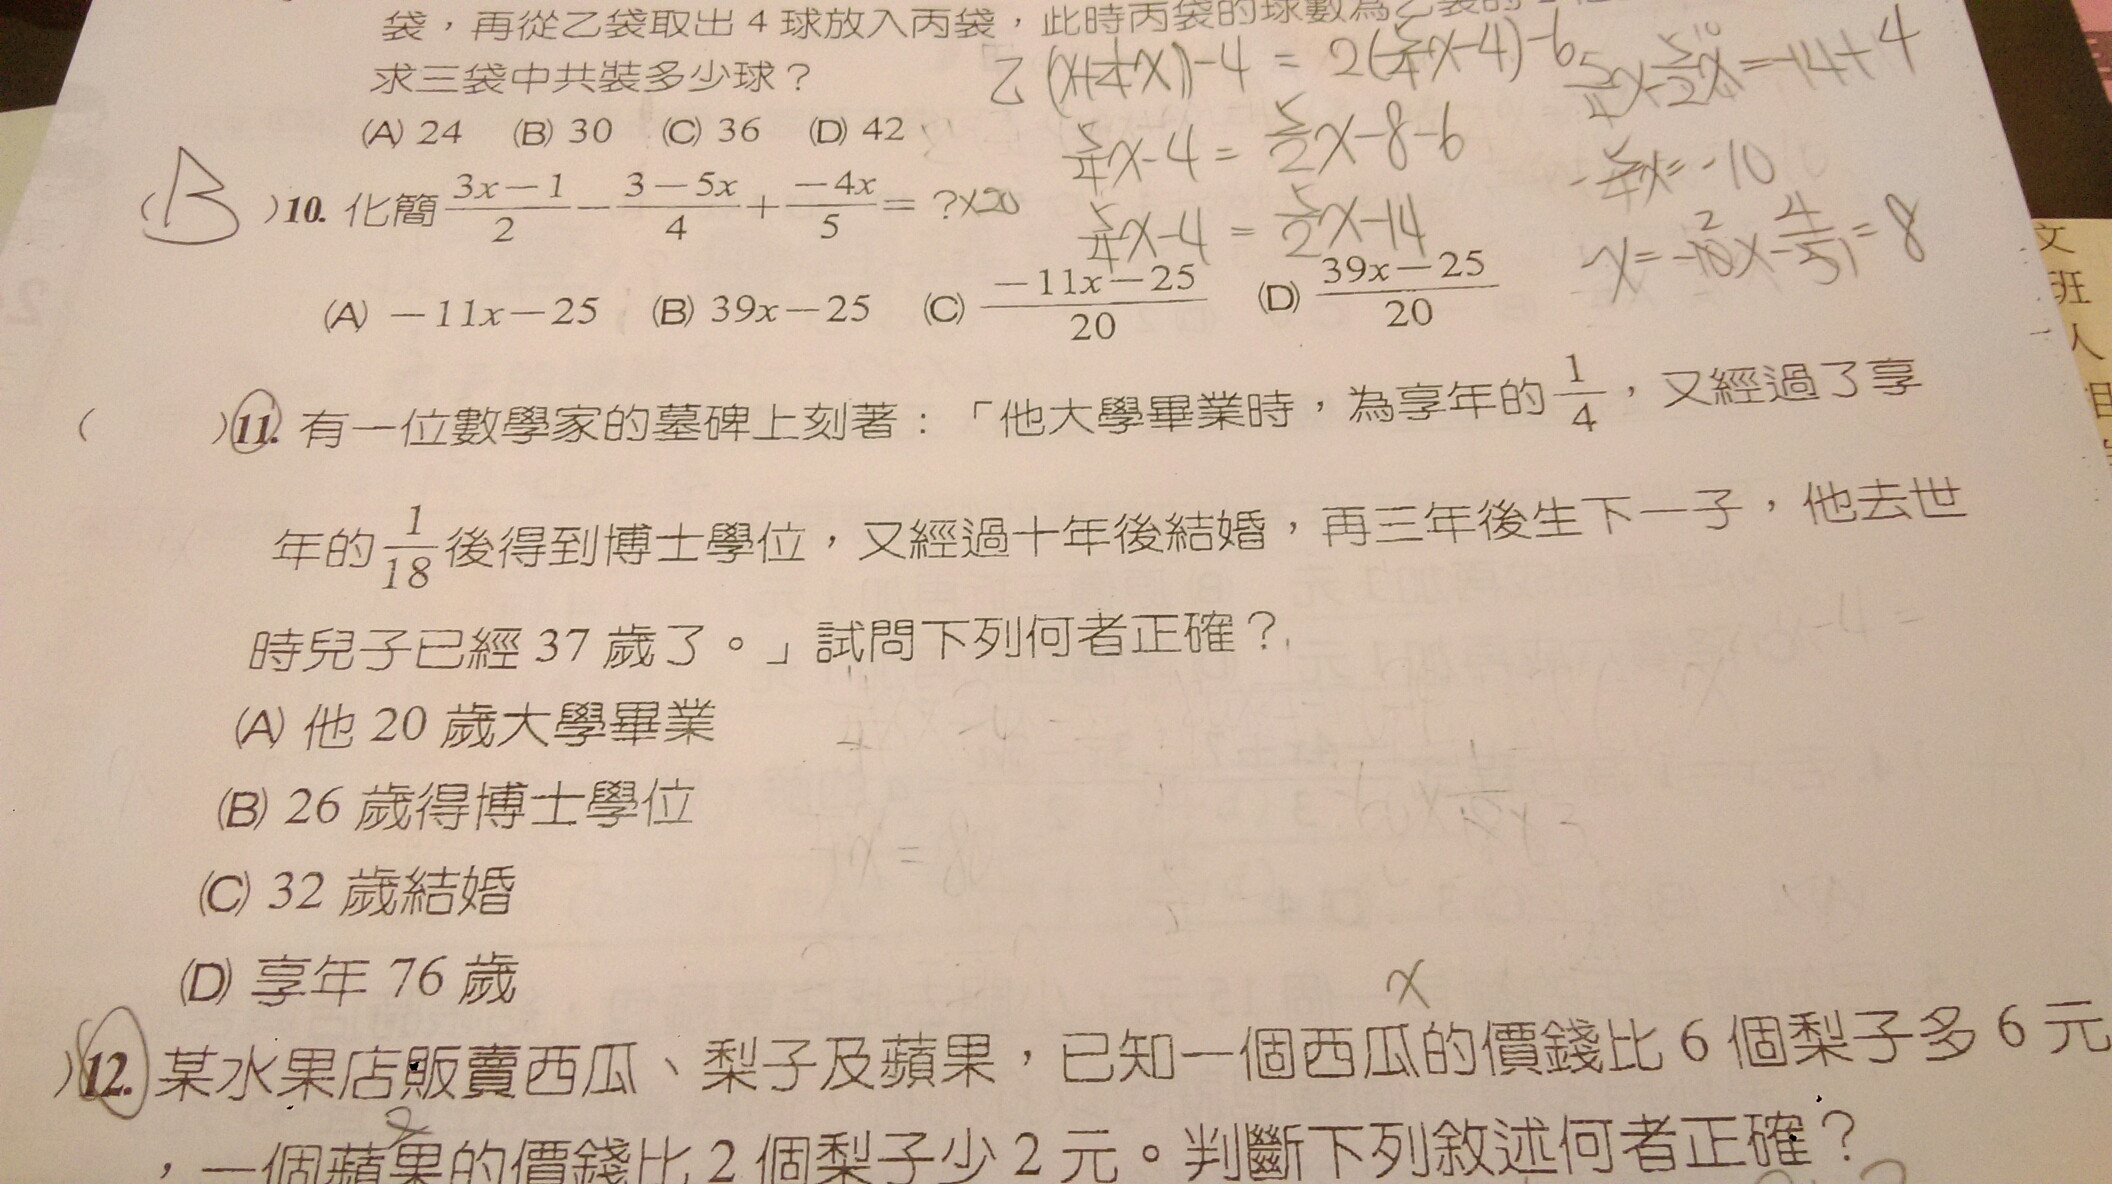 袋,再從乙袋取出4球放入丙袋,此時丙袋的球數為乙袋的
求三袋中共裝多少球?
(A) 24 (B) 30 (C) 36 (D) 42
乙 (x+1/4x)-4 = 2(5/4x-4)-6
5/4x-4 = 5/2x-8-6
5/4x-4 = 5/2x-14
5/4x-5/2x=-14+4
-5/4x=-10
(B)10. 化簡 3x-1/2 - 3-5x/4 + -4x/5 = ?x20
(A) -11x-25 (B) 39x-25 (C) -11x-25/20 (D) 39x-25/20
( )11. 有一位數學家的墓碑上刻著:「他大學畢業時,為享年的1/4,又經過了享
年的1/18後得到博士學位,又經過十年後結婚,再三年後生下一子,他去世
時兒子已經37歲了。」試問下列何者正確?
(A) 他20歲大學畢業
(B) 26歲得博士學位
(C) 32歲結婚
(D) 享年76歲
x
)12. 某水果店販賣西瓜、梨子及蘋果,已知一個西瓜的價錢比6個梨子多6元
,一個蘋果的價錢比2個梨子少2元。判斷下列敘述何者正確?